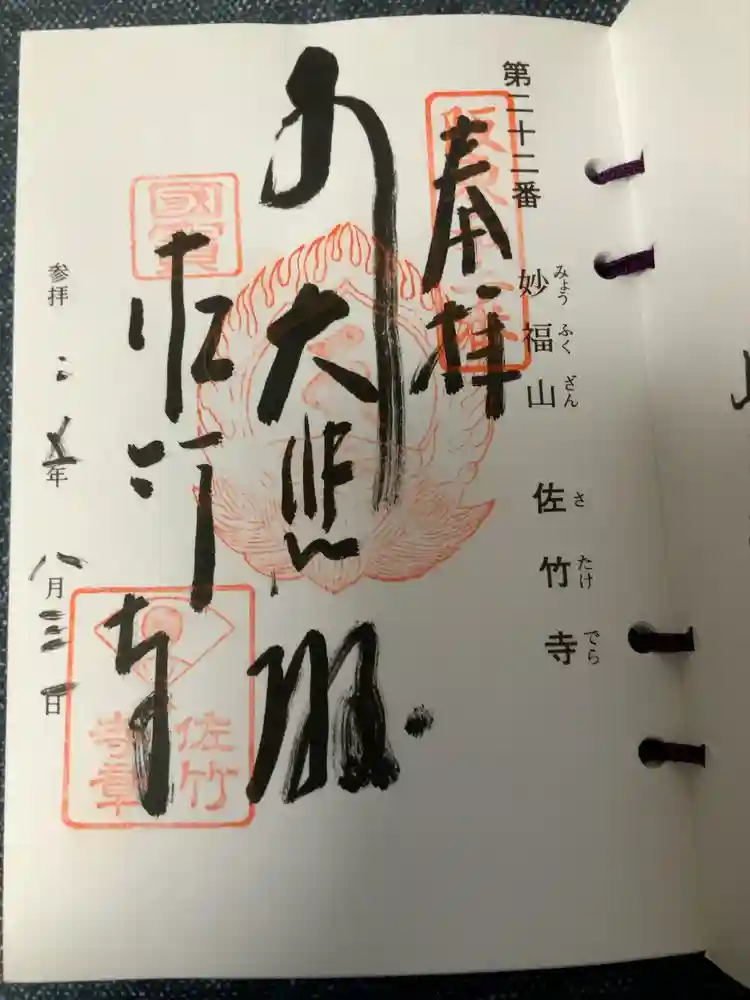 第二十二番
妙福山 佐竹寺
みょうふくざん さたけでら
奉拝
大悲殿
佐竹寺
國寶
佐竹寺章
参拝 二五年八月三一日